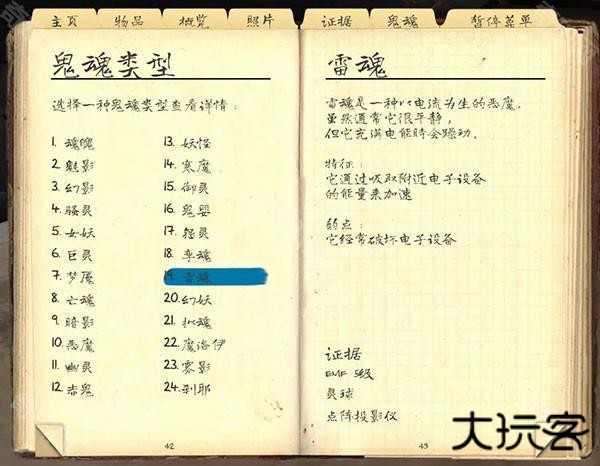 主页
物品
概览
照片
证据
鬼魂
暂停菜单
鬼魂类型
选择一种鬼魂类型查看详情：
1. 魂魄
2. 魅影
3. 幻影
4. 骚灵
5. 女妖
6. 巨灵
7. 梦魇
8. 亡魂
9. 暗影
10. 恶魔
11. 幽灵
12. 赤鬼
13. 妖怪
14. 寒魔
15. 御灵
16. 鬼婴
17. 怨灵
18. 孪魂
19. 雷魂
20. 幻妖
21. 拟魂
22. 魔洛伊
23. 雾影
24. 刹耶
42
雷魂
雷魂是一种以电流为生的恶魔，
虽然通常它很平静，
但它充满电能时会躁动。
特征：
它通过吸取附近电子设备
的能量来加速
弱点：
它经常破坏电子设备
证据
EMF 5级
灵球
点阵投影仪
43
大玩客